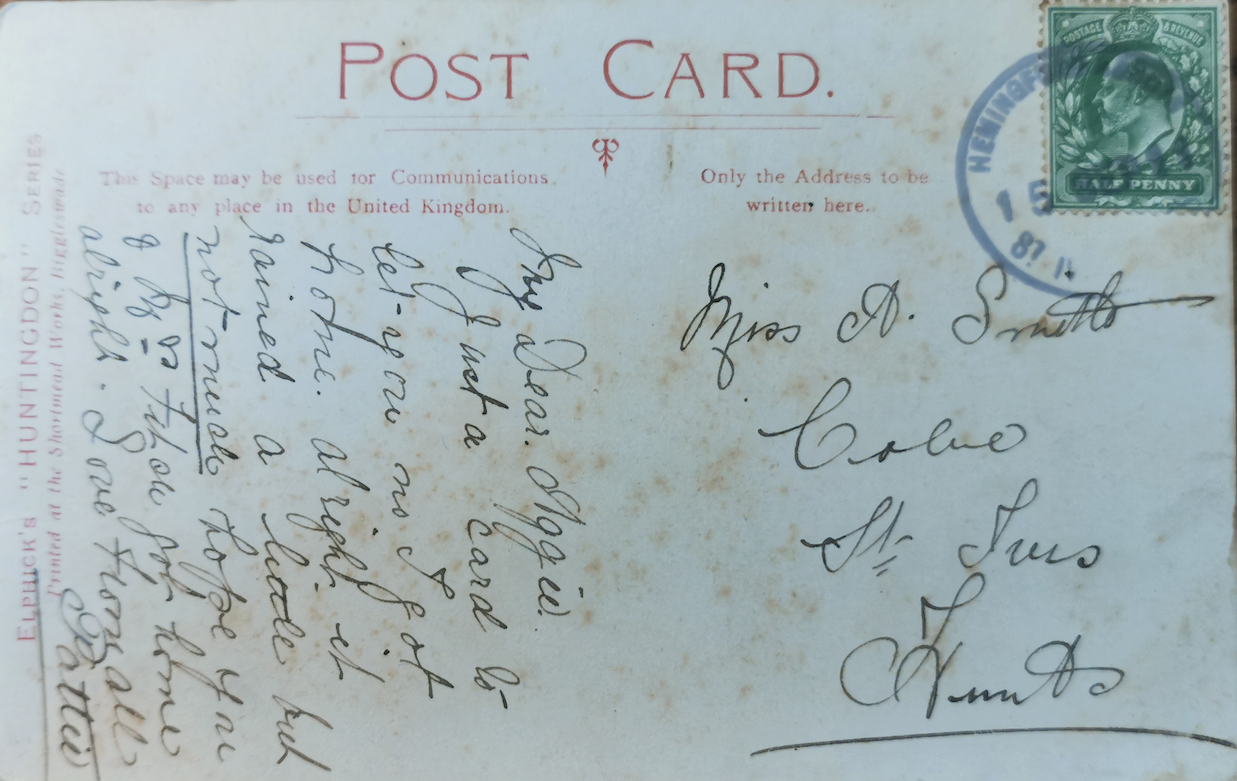 POST CARD.
This Space may be used for Communications
to any place in the United Kingdom.
Only the Address to be
written here.
POSTAGE & REVENUE
HALF PENNY
HEMINGF
15
87
Miss A. Smith
Colne
St Ives
Hunts
My Dear. Aggie.
Just a card to
let you no I got
home. alright it
rained a little but
not much hope you
& Fred got home
alright. Love from all
Pattie
ELPHICK'S "HUNTINGDON" SERIES
Printed at the Shortmead Works, Biggleswade